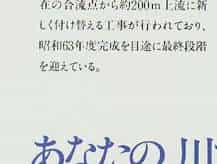 在の合流点から約200m上流に新
しく付け替える工事が行われており、
昭和63年度完成を目途に最終段階
を迎えている。
あなたの川